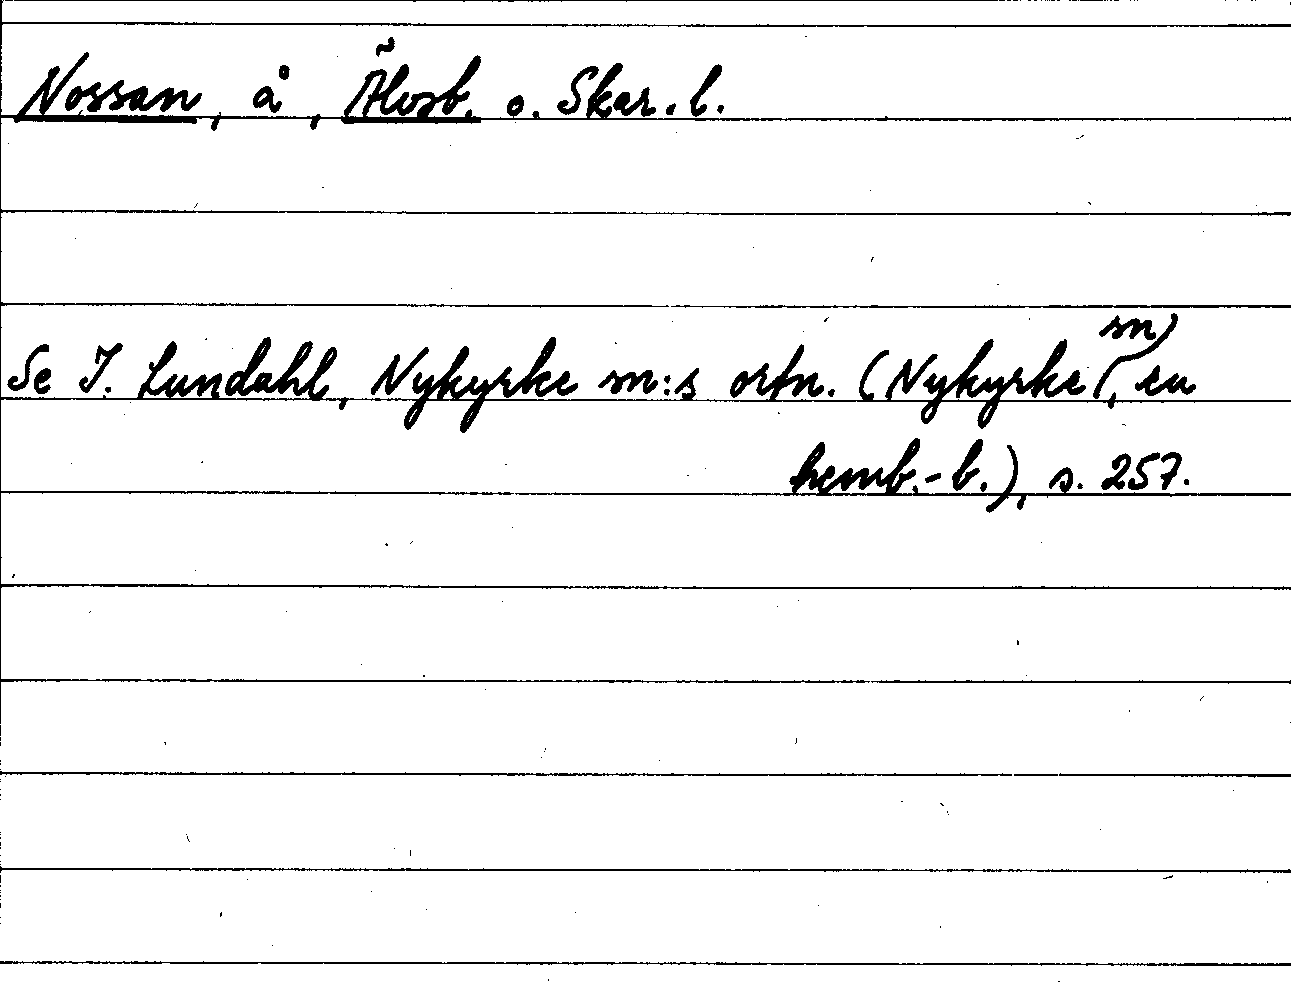 Nossan, å, Älvsb. o. Skar. l.
Se I. Lundahl, Nykyrke sn:s ortn. (Nykyrke sn, en
hemb.-b.), s. 257.